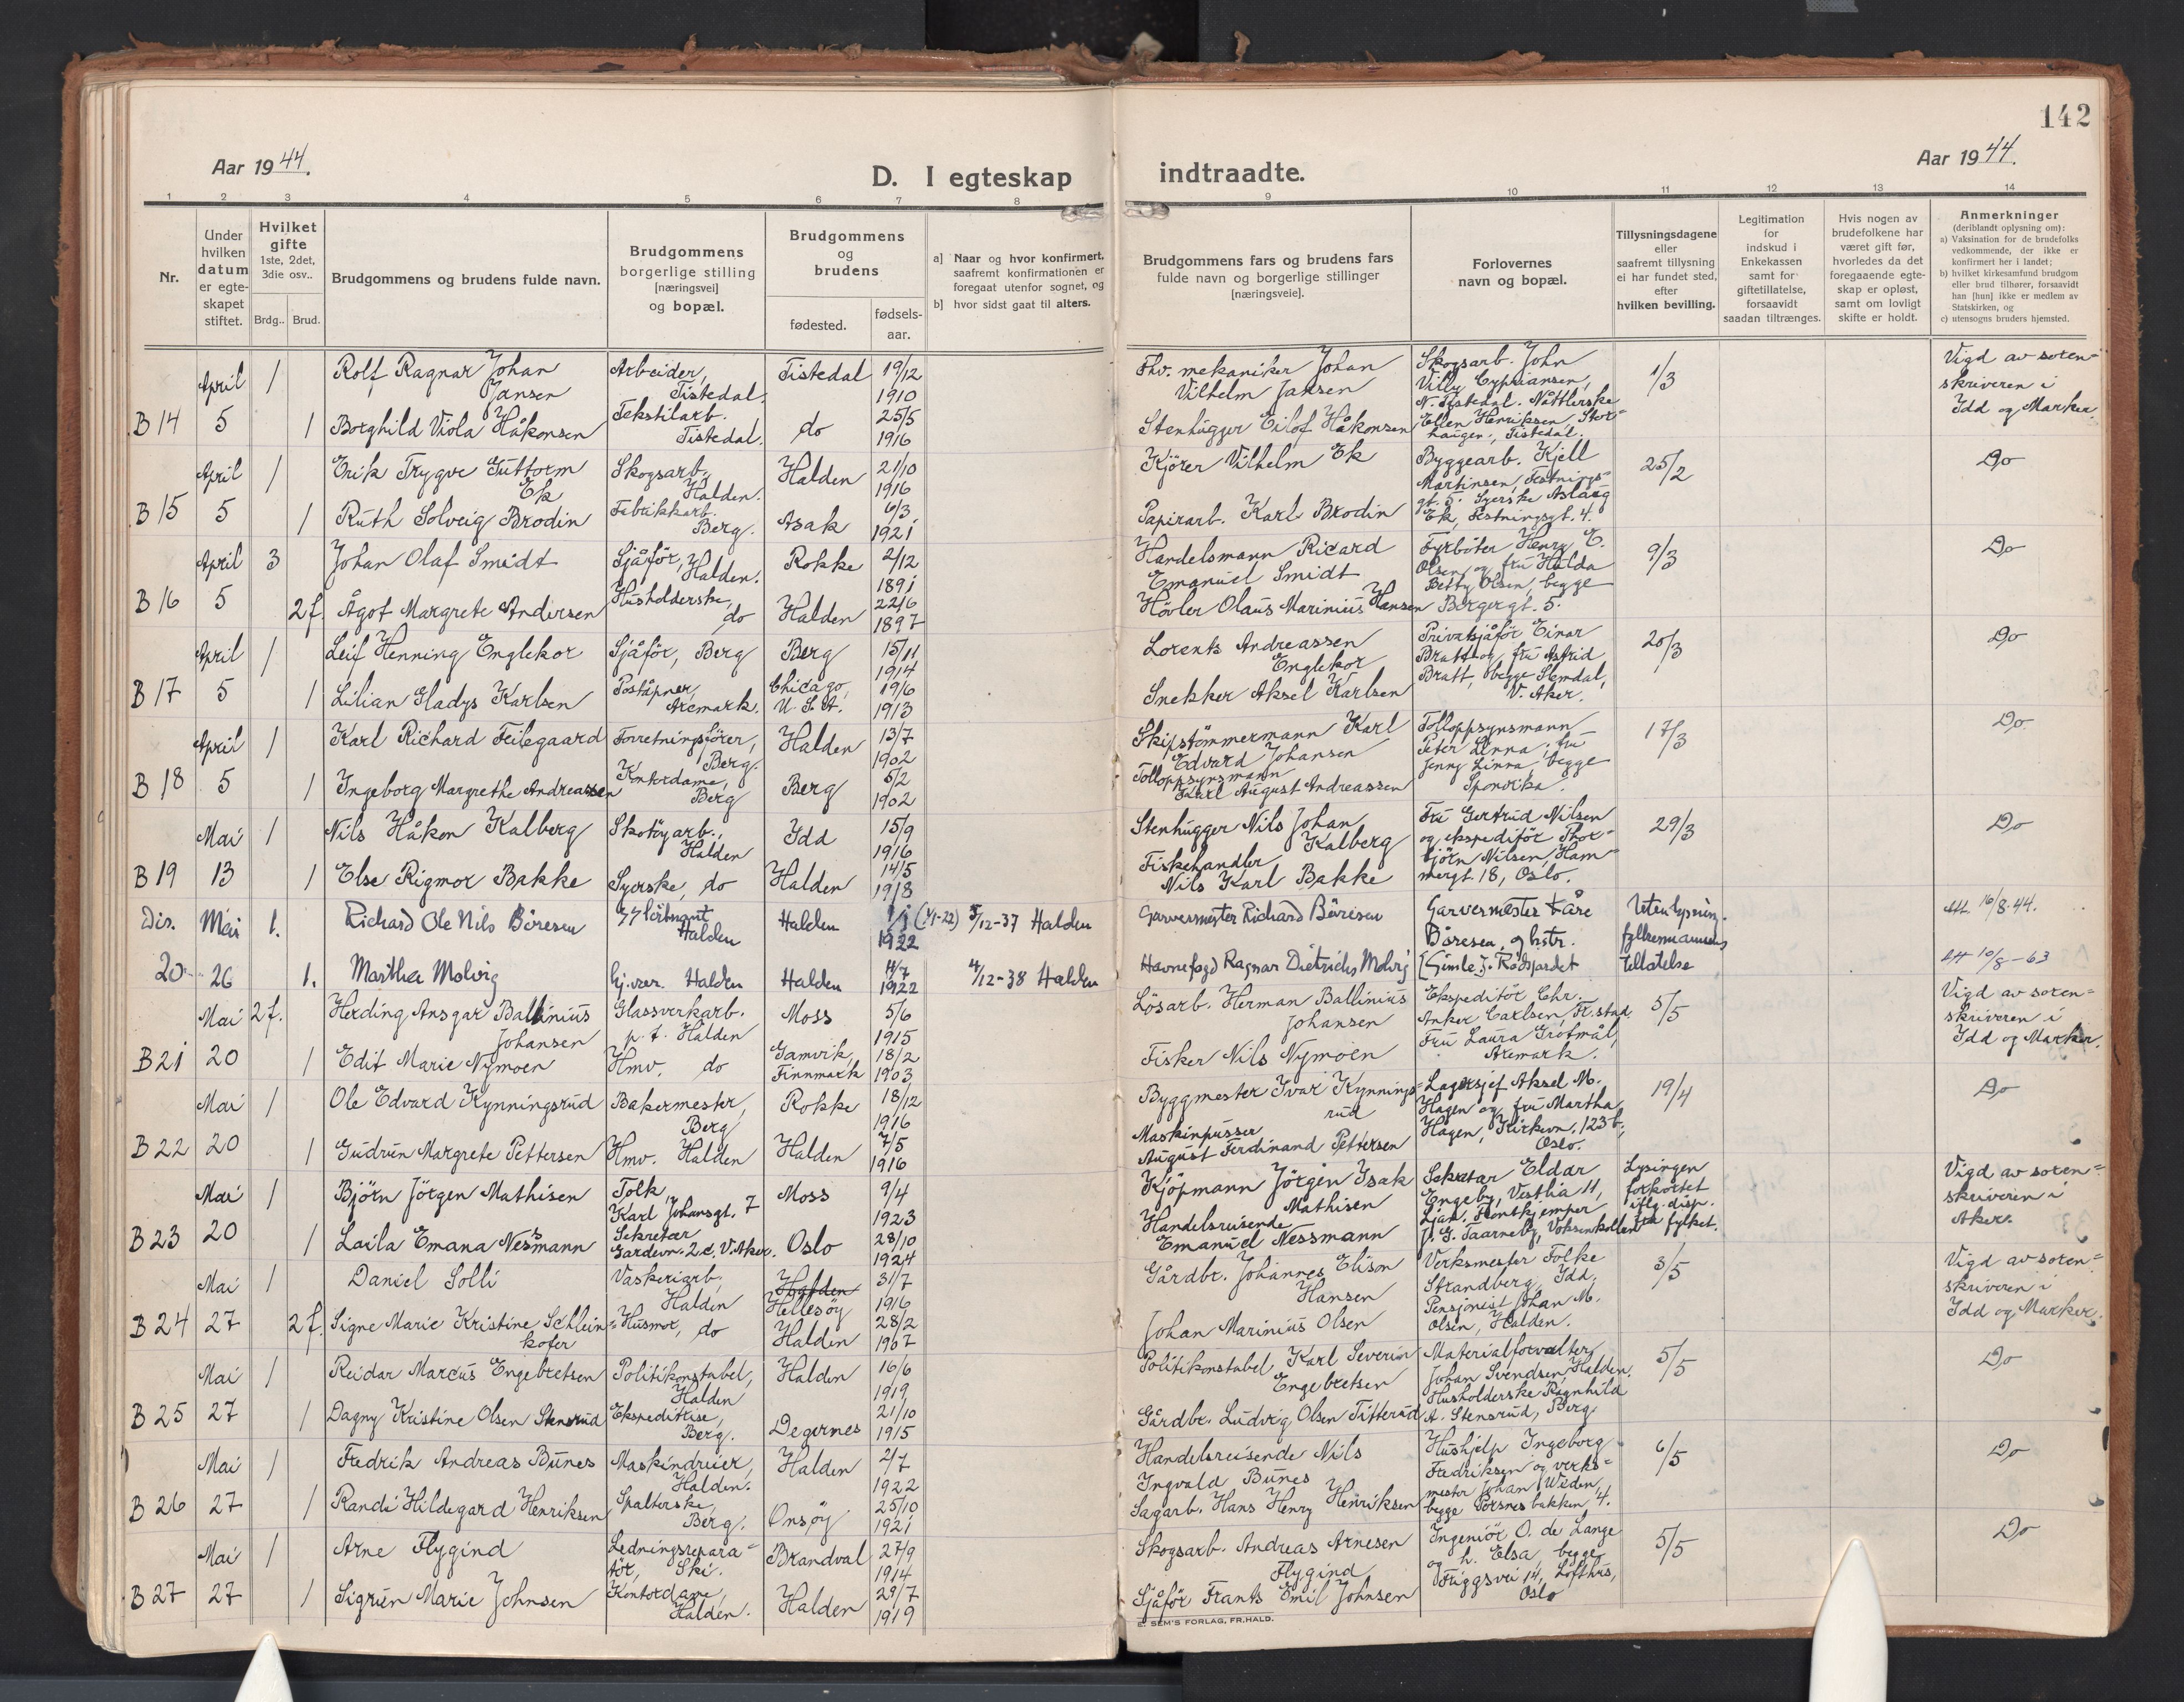 142
Aar 1944.
D. I egteskap indtraadte.
Aar 1944.
1 2 3 4 5 6 7 8 9 10 11 12 13 14
Nr.
Under hvilken datum er egteskapet stiftet.
Hvilket gifte 1ste, 2det, 3die osv..
Brdg.. Brud.
Brudgommens og brudens fulde navn.
Brudgommens borgerlige stilling [næringsvei] og bopæl.
Brudgommens og brudens
fødested.
fødsels-aar.
a] Naar og hvor konfirmert, saafremt konfirmationen er foregaat utenfor sognet, og
b] hvor sidst gaat til alters.
Brudgommens fars og brudens fars fulde navn og borgerlige stillinger [næringsveie].
Forlovernes navn og bopæl.
Tillysningsdagene eller saafremt tillysning ei har fundet sted, efter hvilken bevilling.
Legitimation for indskud i Enkekassen samt for giftetillatelse, forsaavidt saadan tiltrænges.
Hvis nogen av brudefolkene har været gift før, hvorledes da det foregaaende egteskap er opløst, samt om lovligt skifte er holdt.
Anmerkninger (deriblandt oplysning om):
a) Vaksination for de brudefolks vedkommende, der ikke er konfirmert her i landet;
b) hvilket kirkesamfund brudgom eller brud tilhører, forsaavidt han [hun] ikke er medlem av Statskirken, og
c) utensogns bruders hjemsted.
April 1 Rolf Ragnar Johan Jansen Arbeider, Tistedal. Tistedal 19/12 1910 Fhv. mekaniker Johan Vilhelm Jansen Skogsarb. John Villy Cypriansen, N. Tistedal. Nåttlerske 1/3 Vigd av sorenskriveren i Idd og Marker.
B 14 5 1 Borghild Viola Håkonsen Tekstilarb. Tistedal. do 25/5 1916 Stenhugger Eilof Håkonsen Ellen Henriksen, Storhaugen, Tistedal.
April 1 Erik Trygve Guttorm Ek Skogsarb. Halden. Halden 21/10 1916 Kjörer Vilhelm Ek Byggearb. Kjell Martinsen, Festningsgt. 5. Syerske Aslaug 25/2 Do
B 15 5 1 Ruth Solveig Brodin Fabrikkarb. Berg. Asak 6/3 1921 Papirarb. Karl Brodin Ek, Festningsgt. 4.
April 3 Johan Olaf Smidt Sjåför, Halden. Rokke 2/12 1891 Handelsmann Ricard Emanuel Smidt Fyrböter Henry E. Olsen og fru Hulda 9/3 Do
B 16 5 2 f. Ågot Margrete Andersen Husholderske, do Halden 22/6 1897 Hövler Olaus Marinius Hansen Betty Olsen, begge Borgergt. 5.
April 1 Leif Henning Englekor Sjåför, Berg Berg 15/11 1914 Lorents Andreassen Englekor Privatsjåför Einar Bratt og fru Astrid 20/3 Do
B 17 5 1 Lilian Gladys Karlsen Poståpner, Aremark. Chicago, U.S.A. 19/6 1913 Snekker Aksel Karlsen Bratt, begge Slemdal, V. Aker.
April 1 Karl Richard Feilegaard Forretningsförer, Berg. Halden 13/7 1902 Skipstömmermann Karl Edvard Johansen Tolloppsynsmann Peter Linna, fru 17/3 Do
B 18 5 1 Ingeborg Margrethe Andreassen Kontordame, Berg Berg 5/2 1902 Tolloppsynsmann Karl August Andreassen Jenny Linna, begge Sponvika.
Mai 1 Nils Håkon Kalberg Skotöyarb., Halden Idd 15/9 1916 Stenhugger Nils Johan Kalberg Fru Gertrud Nilsen og ekspeditör Thor- 29/3 Do
B 19 13 1 Else Rigmor Bakke Syerske, do Halden 14/5 1918 Fiskehandler Nils Karl Bakke björn Nilsen, Hammergt. 18, Oslo.
Dis. Mai 1. Richard Ole Nils Böresen Halden Halden 1922 5/12-37 Halden Garvermester Richard Böresen Garvermester Kåre Böresen og hstr. Uten lysning. fylkesmannens 16/8-44.
20 26 1. Marthea Molvig hj.vær. Halden Halden 14/7 1922 4/12-38 Halden Havnefogd Ragnar Dietrichs Molvig [Gimle] Rödsfjordet tillatelse 10/8-63
Mai 2 f. Herding Ansgar Ballinius Johansen Glassverkarb. p.t. Halden Moss 5/6 1915 Lösarb. Herman Ballinius Johansen Ekspeditör Chr. Anker Carlsen, Fr.stad. 5/5 Vigd av sorenskriveren i Idd og Marker.
B 21 20 1 Edit Marie Nymoen Hmv. do Gamvik, Finnmark 18/2 1903 Fisker Nils Nymoen Fru Laura Grotmål, Aremark.
Mai 1 Ole Edvard Kynningsrud Bakermester, Berg Rokke 18/12 1916 Byggmester Ivar Kynningsrud Lagersjef Aksel M. Hagen og fru Martha 19/4 Do
B 22 20 1 Gudrun Margrete Pettersen Hmv. Halden Halden 7/5 1916 Maskinpusser August Ferdinand Pettersen Hagen, Kirkevn. 123 b, Oslo.
Mai 1 Björn Jörgen Mathisen Tolk, Karl Johansgt. 7 Moss 9/4 1923 Kjöpmann Jörgen Isak Mathisen Sekretær Eldar Engeby, Vestlia 11, Lysingen forkortet iflg. disp. Vigd av sorenskriveren i Aker.
B 23 20 1 Laila Emana Nessmann Sekretær Gardevn. 2 c, V. Aker. Oslo 28/10 1924 Handelsreisende Emanuel Nessmann Ljan. Frontkjemper J. G. Taarneby, Voksenkollen fra fylket.
Mai 1 Daniel Solli Vaskeriarb. Halden Halden Hellesöy 31/7 1916 Gårdbr. Johannes Elison Hansen Verksmester Folke Strandberg, Idd, 3/5 Vigd av sorenskriveren i Idd og Marker.
B 24 27 2 f. Signe Marie Kristine Schleinkofer Husmor, do Halden 28/2 1907 Johan Marinius Olsen Pensjonist Johan M. Olsen, Halden.
Mai 1 Reidar Marcus Engebretsen Politikonstabel, Halden Halden 16/6 1919 Politikonstabel Karl Severin Engebretsen Materialforvalter Johan Svendsen, Halden. 5/5 Do
B 25 27 1 Dagny Kristine Olsen Stensrud Ekspeditrise, Berg. Degernes 21/10 1915 Gårdbr. Ludvig Olsen Titterud Husholderske Ragnhild A. Stensrud, Berg
Mai 1 Fredrik Andreas Bunes Maskindreier, Halden. Halden 2/7 1922 Handelsreisende Nils Ingvald Bunes Hushjelp Ingeborg Fredriksen og verks- 6/5 Do
B 26 27 1 Randi Hildegard Henriksen Spalterske, Berg. Onsöy 25/10 1921 Sagarb. Hans Henry Henriksen mester Johan Weden, begge Porsnesbakken 4.
Mai 1 Arne Flygind Ledningsreparatör, Ski. Brandval 27/9 1914 Skogsarb. Andreas Arnesen Flygind Ingeniör O. de Lange og h. Elsa, begge 5/5 Do
B 27 27 1 Sigrun Marie Johnsen Kontordame, Halden. Halden 29/7 1919 Sjåför Frants Emil Johnsen Friggsvei 14, Lofthus, Oslo
E. SEM'S FORLAG, FR.HALD.